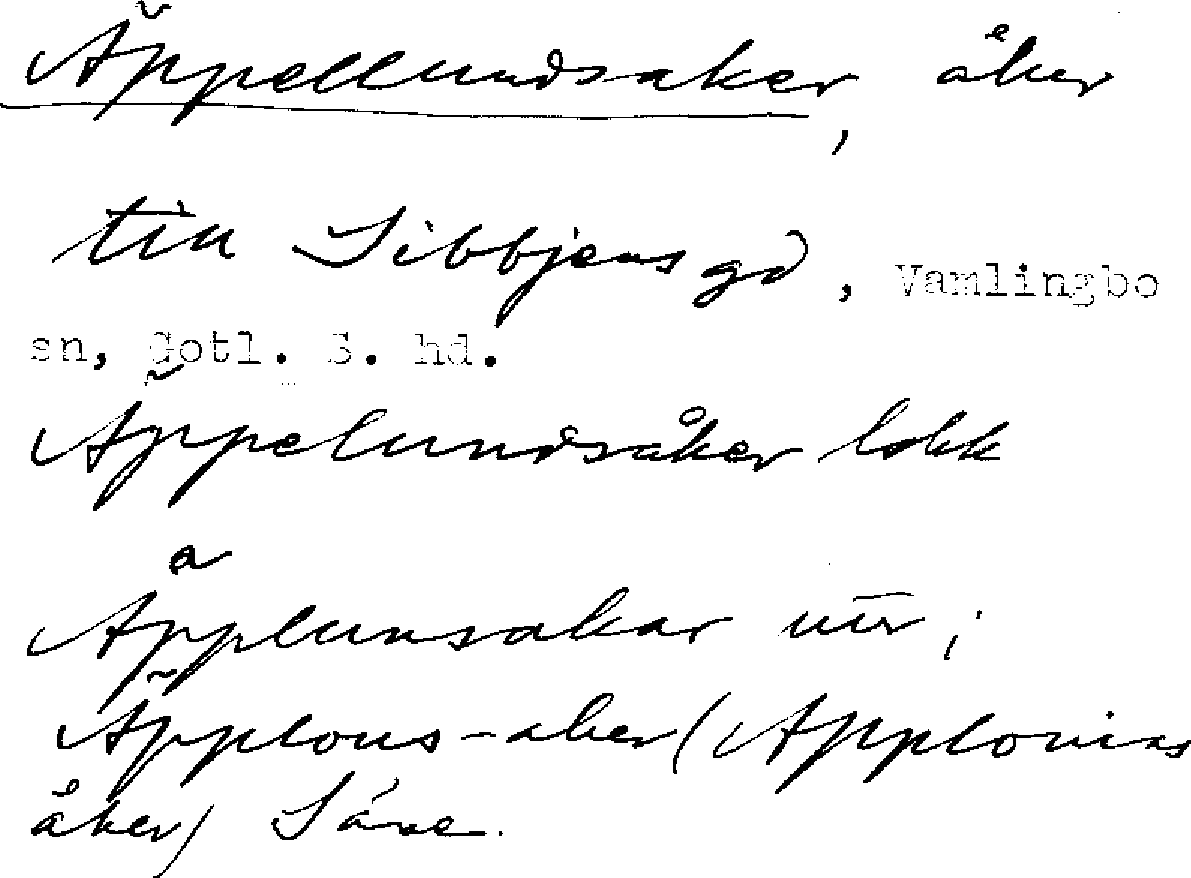 Äppellundsaker, åker
till Sibbjens gd, Vamlingbo
sn, Gotl. S. hd.
Äppelundsåker lokk
a
Äpplunsakar
Äpplons-aker (Applonias
åker) Säve.